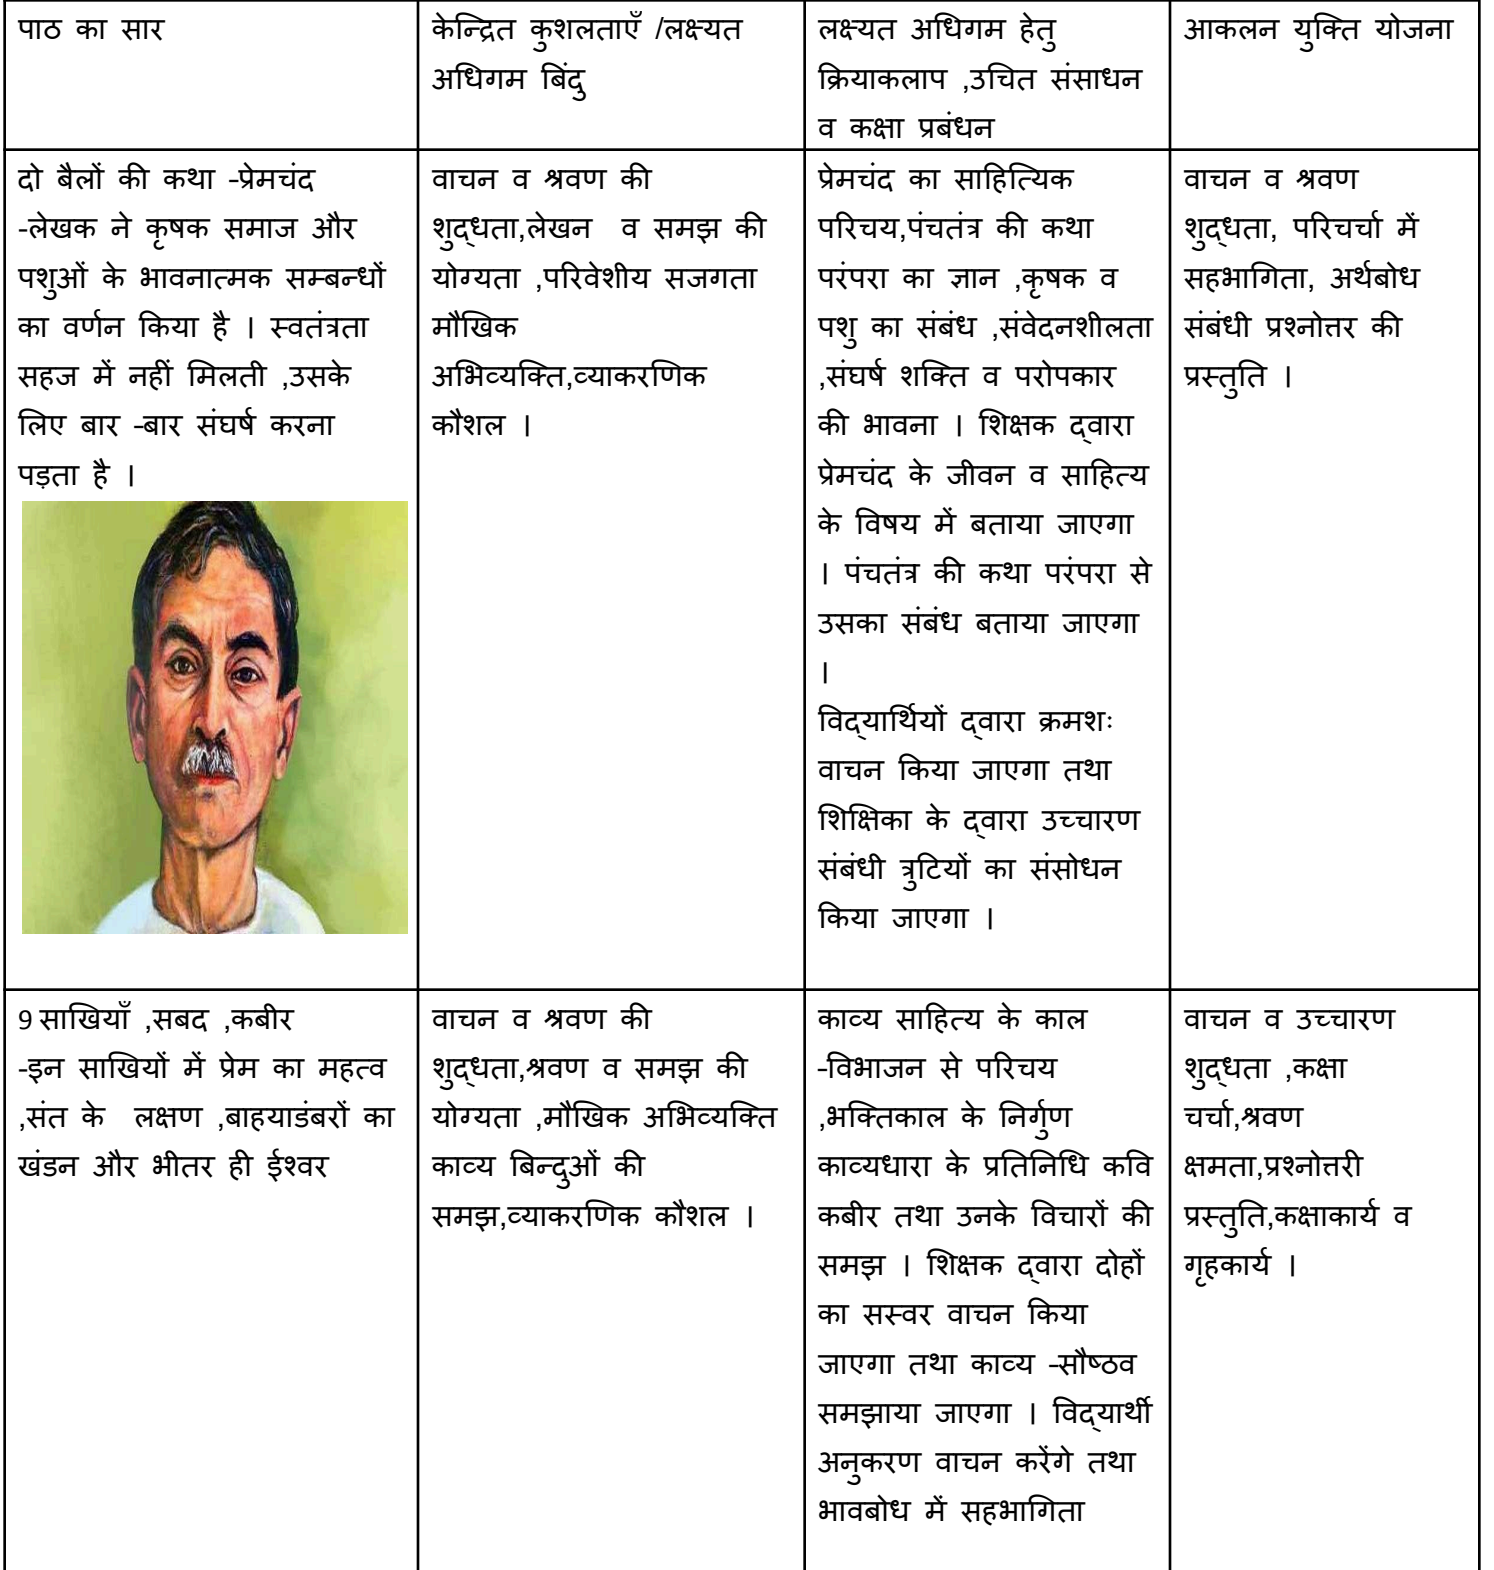 पाठ का सार
केन्द्रित कुशलताएँ /लक्ष्यत
अधिगम बिंदु
लक्ष्यत अधिगम हेतु
क्रियाकलाप ,उचित संसाधन
व कक्षा प्रबंधन
आकलन युक्ति योजना
दो बैलों की कथा –प्रेमचंद
-लेखक ने कृषक समाज और
पशुओं के भावनात्मक सम्बन्धों
का वर्णन किया है । स्वतंत्रता
सहज में नहीं मिलती ,उसके
लिए बार –बार संघर्ष करना
पड़ता है ।
वाचन व श्रवण की
शुद्धता,लेखन व समझ की
योग्यता ,परिवेशीय सजगता
मौखिक
अभिव्यक्ति,व्याकरणिक
कौशल ।
प्रेमचंद का साहित्यिक
परिचय,पंचतंत्र की कथा
परंपरा का ज्ञान ,कृषक व
पशु का संबंध ,संवेदनशीलता
,संघर्ष शक्ति व परोपकार
की भावना । शिक्षक द्वारा
प्रेमचंद के जीवन व साहित्य
के विषय में बताया जाएगा
। पंचतंत्र की कथा परंपरा से
उसका संबंध बताया जाएगा
।
विद्यार्थियों द्वारा क्रमशः
वाचन किया जाएगा तथा
शिक्षिका के द्वारा उच्चारण
संबंधी त्रुटियों का संसोधन
किया जाएगा ।
वाचन व श्रवण
शुद्धता, परिचर्चा में
सहभागिता, अर्थबोध
संबंधी प्रश्नोत्तर की
प्रस्तुति ।
9 साखियाँ ,सबद ,कबीर
-इन साखियों में प्रेम का महत्व
,संत के लक्षण ,बाहयाडंबरों का
खंडन और भीतर ही ईश्वर
वाचन व श्रवण की
शुद्धता,श्रवण व समझ की
योग्यता ,मौखिक अभिव्यक्ति
काव्य बिन्दुओं की
समझ,व्याकरणिक कौशल ।
काव्य साहित्य के काल
–विभाजन से परिचय
,भक्तिकाल के निर्गुण
काव्यधारा के प्रतिनिधि कवि
कबीर तथा उनके विचारों की
समझ । शिक्षक द्वारा दोहों
का सस्वर वाचन किया
जाएगा तथा काव्य –सौष्ठव
समझाया जाएगा । विद्यार्थी
अनुकरण वाचन करेंगे तथा
भावबोध में सहभागिता
वाचन व उच्चारण
शुद्धता ,कक्षा
चर्चा,श्रवण
क्षमता,प्रश्नोत्तरी
प्रस्तुति,कक्षाकार्य व
गृहकार्य ।